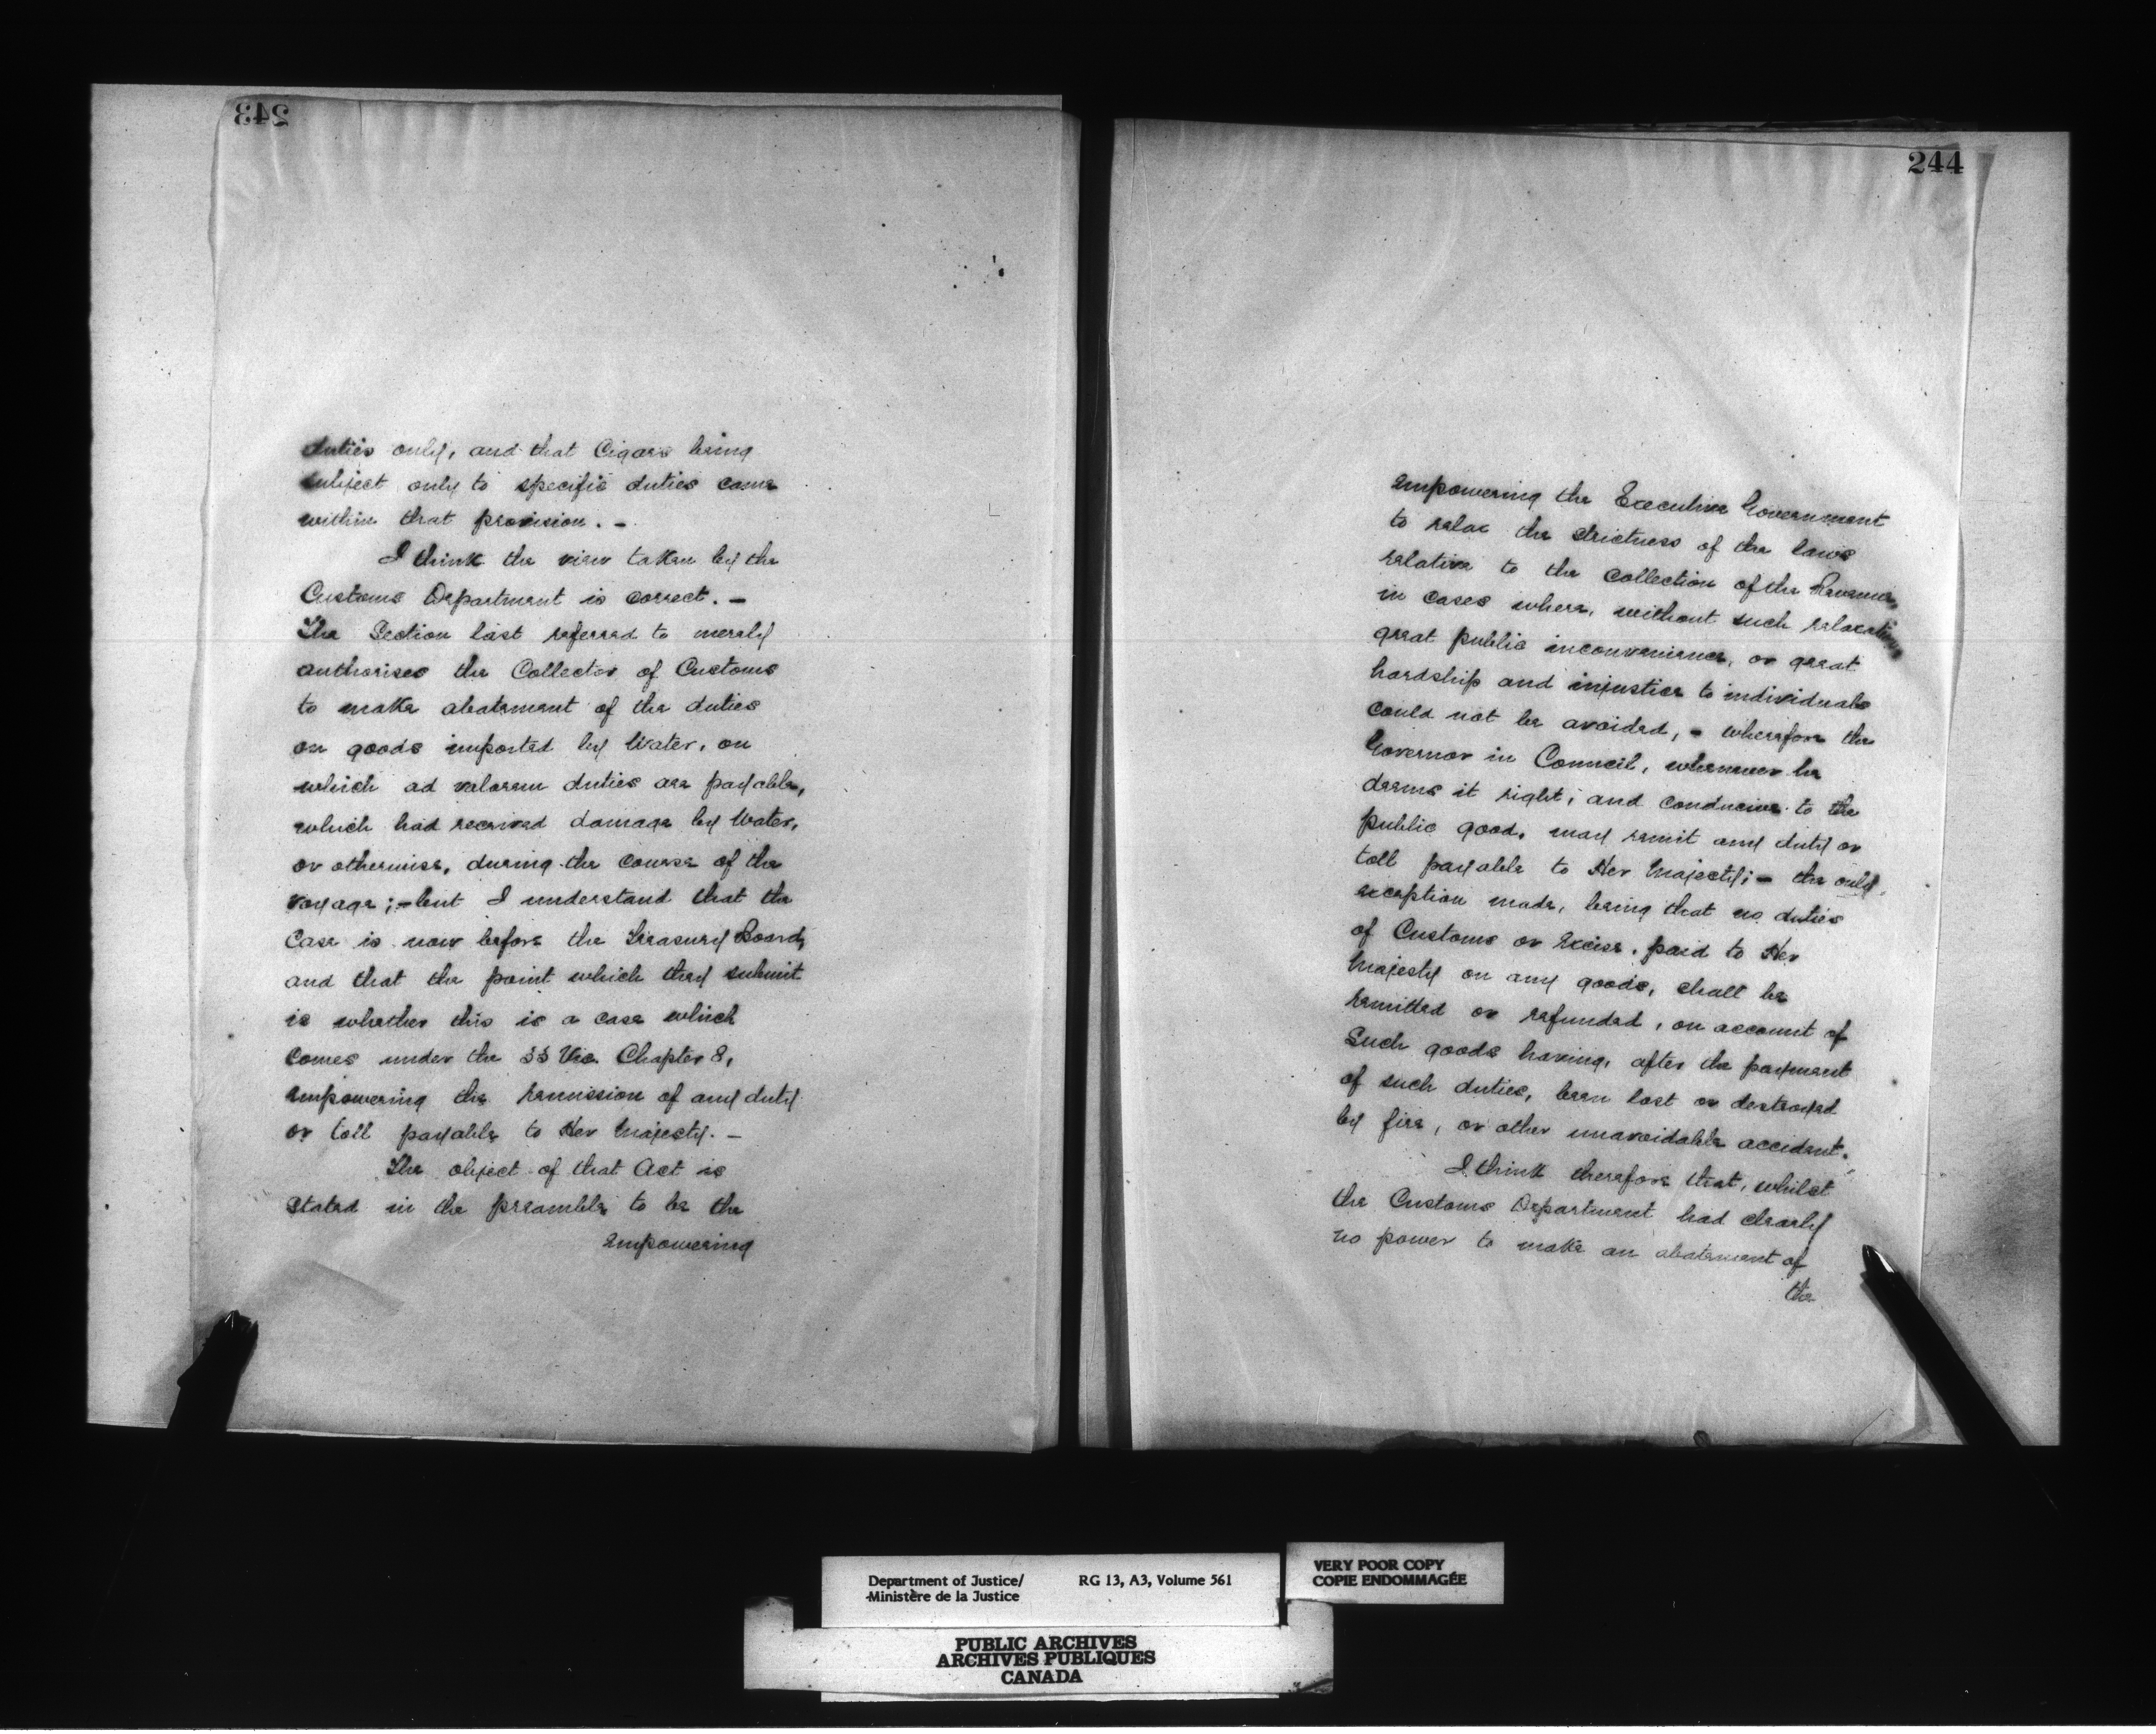 243
duties only, and that Cigars being
subject only to specific duties came
within that provision. –
I think the view taken by the
Customs Department is correct. –
The Section last referred to merely
authorises the Collector of Customs
to make abatement of the duties
on goods imported by Water, on
which ad valorem duties are payable,
which had received damage by Water,
or otherwise, during the course of the
voyage; – but I understand that the
Case is now before the Treasury Board,
and that the point which they submit
is whether this is a case which
Comes under the 33 Vic. Chapter 8,
empowering the remission of any duty
or toll payable to Her Majesty. –
The object of that Act is
stated in the preamble to be the
empowering
244
empowering the Executive Government
to relax the strictness of the laws
relative to the Collection of the Revenue,
in cases where, without such relaxations
great public inconvenience, or great
hardship and injustice to individuals
could not be avoided, – wherefore the
Governor in Council, whenever he
deems it right, and conducive to the
public good, may remit any duty or
toll payable to Her Majesty; – the only
exception made, being that no duties
of Customs or Excise, paid to Her
Majesty on any goods, shall be
remitted or refunded, on account of
Such goods having, after the payment
of such duties, been lost or destroyed
by fire, or other unavoidable accident.
I think therefore that, whilst
the Customs Department had clearly
no power to make an abatement of
the
Department of Justice/ RG 13, A3, Volume 561
Ministère de la Justice
VERY POOR COPY
COPIE ENDOMMAGÉE
PUBLIC ARCHIVES
ARCHIVES PUBLIQUES
CANADA